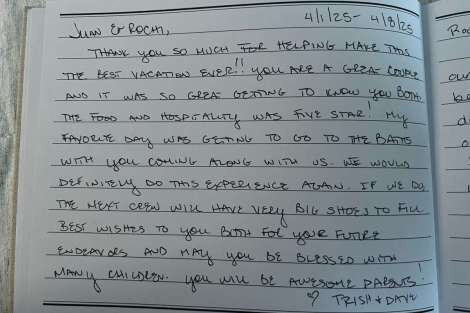 JUAN & ROCHI, 4/1/25 - 4/8/25
THANK YOU SO MUCH FOR HELPING MAKE THIS
THE BEST VACATION EVER!! YOU ARE A GREAT COUPLE
AND IT WAS SO GREAT GETTING TO KNOW YOU BOTH.
THE FOOD AND HOSPITALITY WAS FIVE STAR! MY
FAVORITE DAY WAS GETTING TO GO TO THE BATHS
WITH YOU COMING ALONG WITH US. WE WOULD
DEFINITELY DO THIS EXPERIENCE AGAIN. IF WE DO,
THE NEXT CREW WILL HAVE VERY BIG SHOES TO FILL
BEST WISHES TO YOU BOTH FOR YOUR FUTURE
ENDEAVORS AND MAY YOU BE BLESSED WITH
MANY CHILDREN. YOU WILL BE AWESOME PARENTS!
♡ TRISH & DAVE